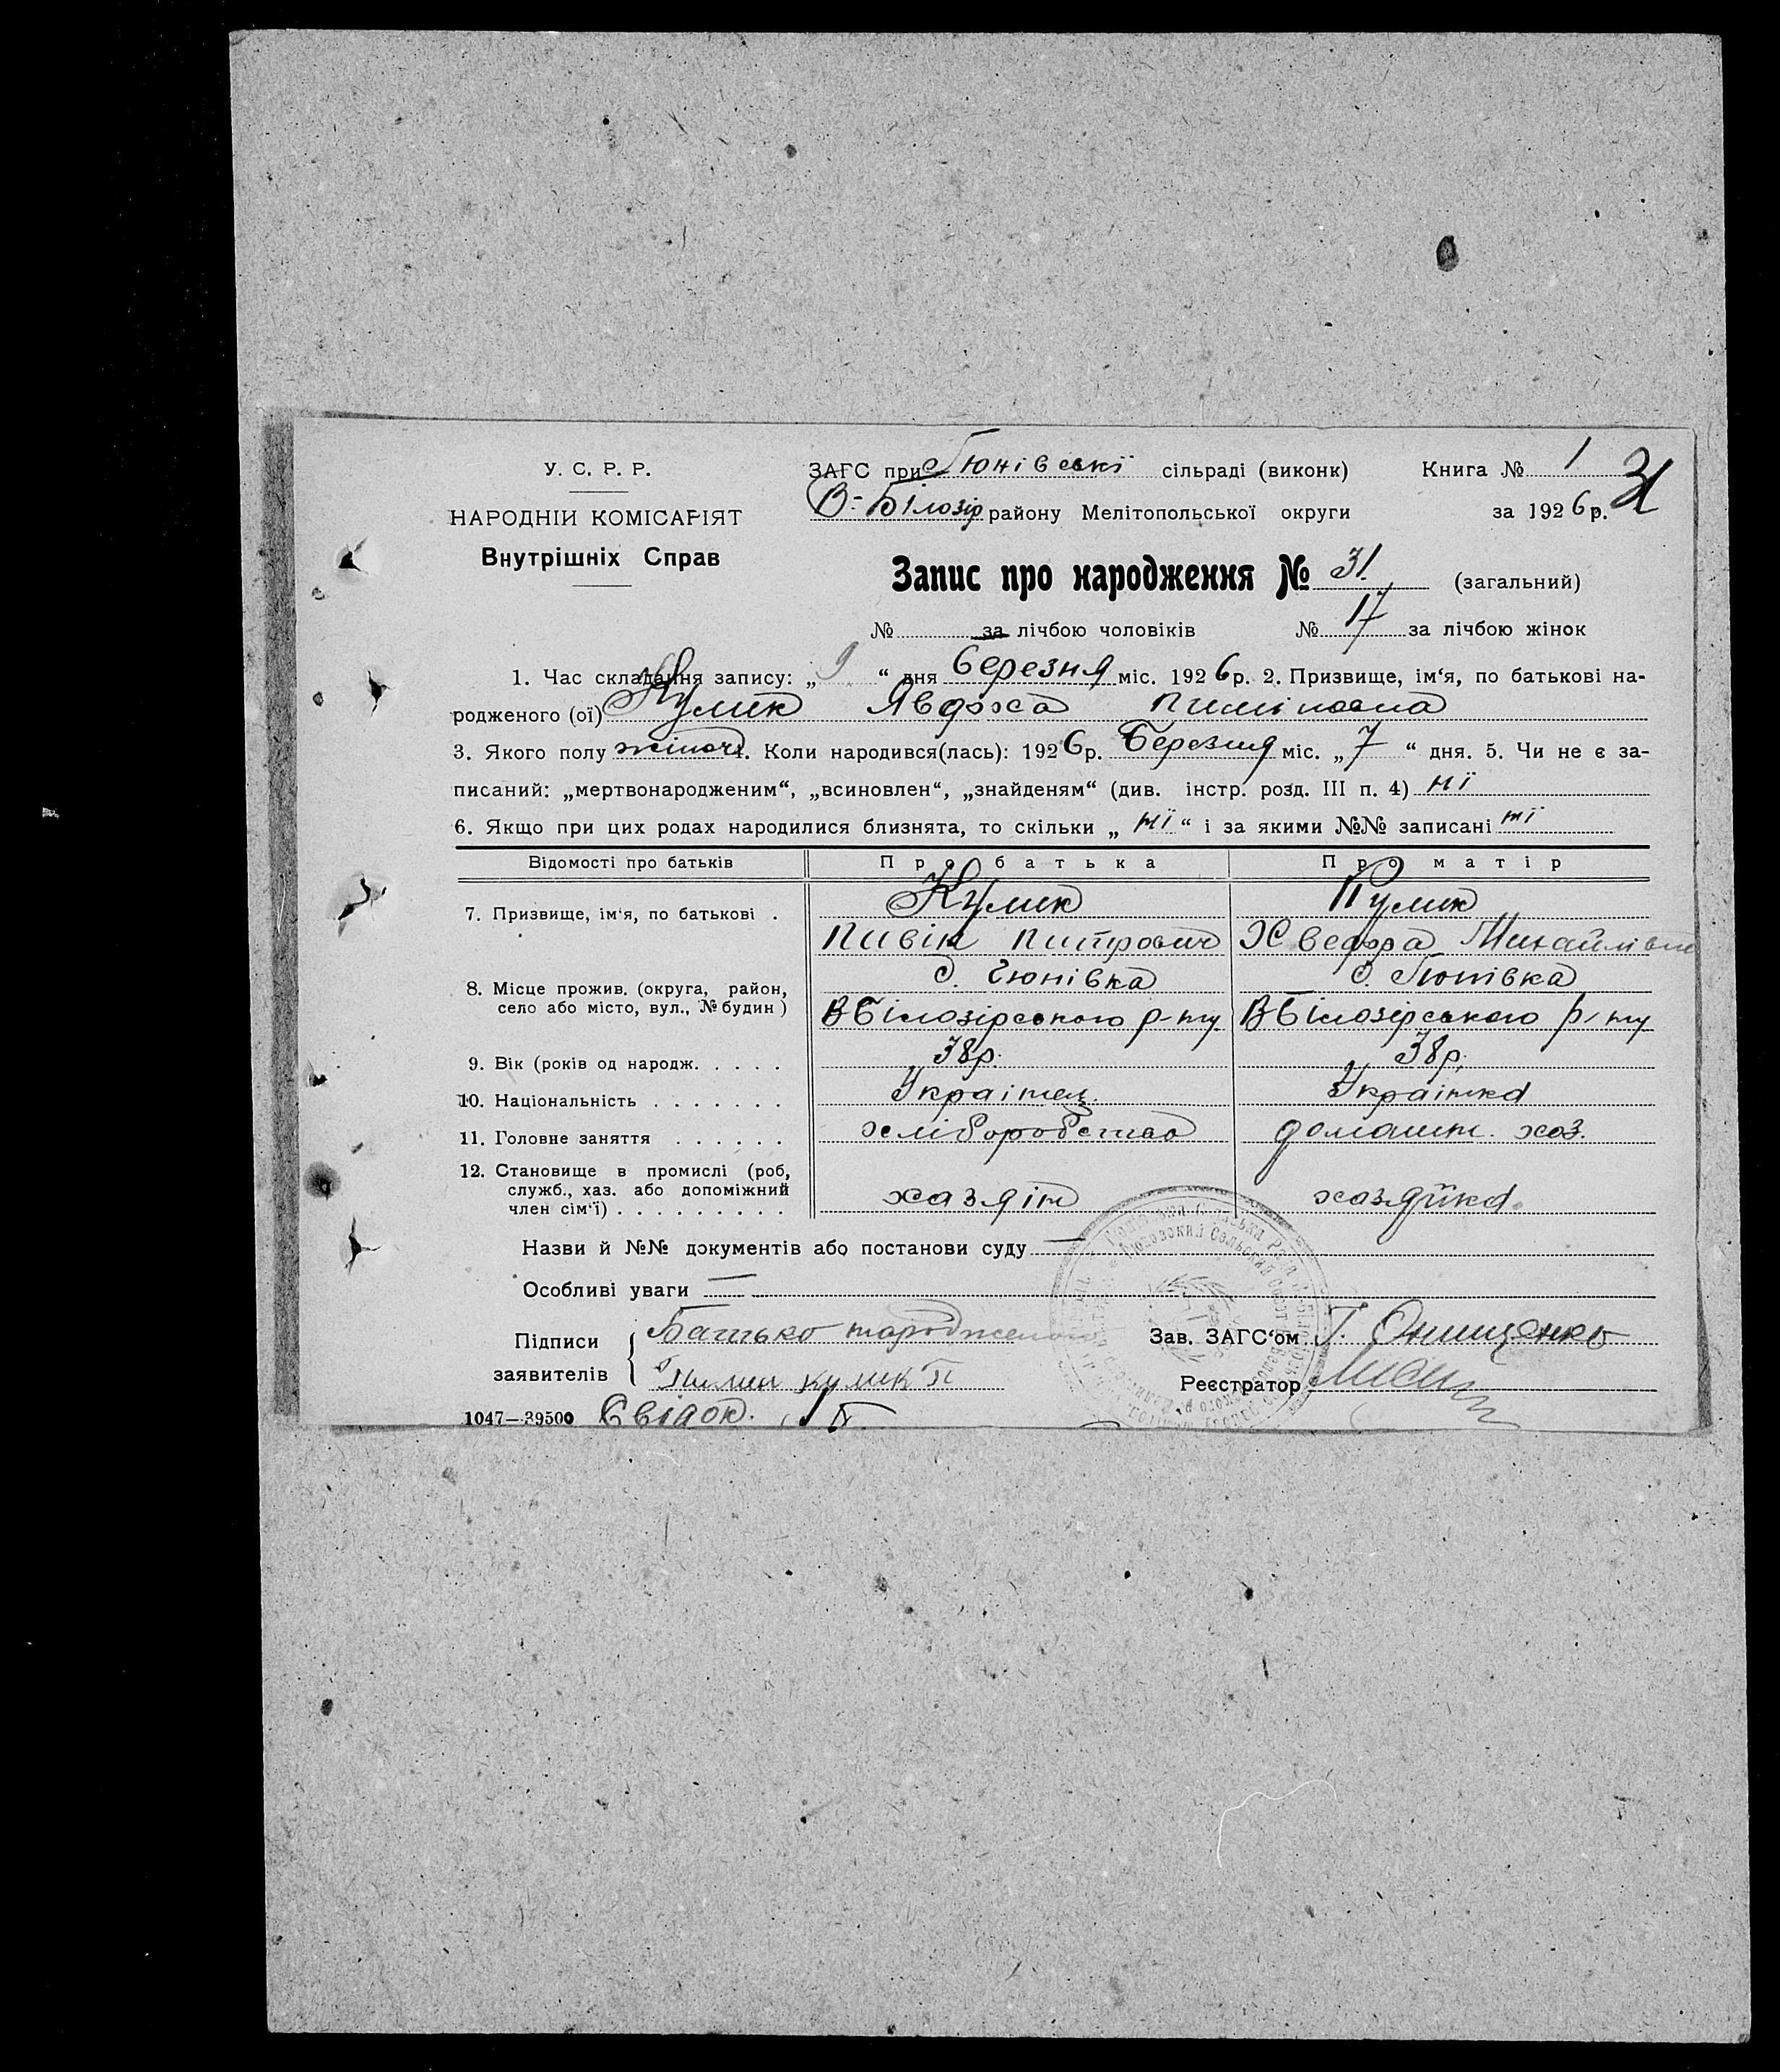 У. С. Р. Р.
НАРОДНІЙ КОМІСАРІЯТ
Внутрішніх Справ
ЗАГС при Гюнівські сільраді (виконк) Книга № 1 31
В-Білозір району Мелітопольської округи за 1926 р.
Запис про народження № 31. (загальний)
№ за лічбою чоловіків № 17 за лічбою жінок
1. Час складання запису: „9“ дня березня міс. 1926р. 2. Призвище, ім‘я, по батькові на-
родженого (ої) Кулик Явдоха
3. Якого полу жіноч 4. Коли народився(лась): 1926р. Березня міс. „7“ дня. 5. Чи не є за-
писаний: „мертвонародженим“, „всиновлен“, „знайденям“ (див. інстр. розд. III п. 4) ні
6. Якщо при цих родах народилися близнята, то скільки „ні“ і за якими №№ записані ні
Відомості про батьків Про батька Про матір
7. Призвище, ім‘я, по батькові . Кулик Кулик
Питрович Хведора Михайлівна
8. Місце прожив. (округа, район, с. Гюнівка с. Гюнівка
село або місто, вул., № будин) ВБілозірського р-ну ВБілозірського р-ну
9. Вік (років од народж. . . . . 38р. 38р.
10. Національність . . . . . . . Українец. Українка
11. Головне заняття . . . . . . хліборобство домашн. хоз.
12. Становище в промислі (роб,
служб., хаз. або допоміжний хазяін хазяйка
член сім‘ї) . . . . . . . . .
Назви й №№ документів або постанови суду —
Особливі уваги —
Підписи Батько народженого Зав. ЗАГС‘ом Г. Онищенко
заявителів Кулик П Реєстратор
1047—39500 Свідок.